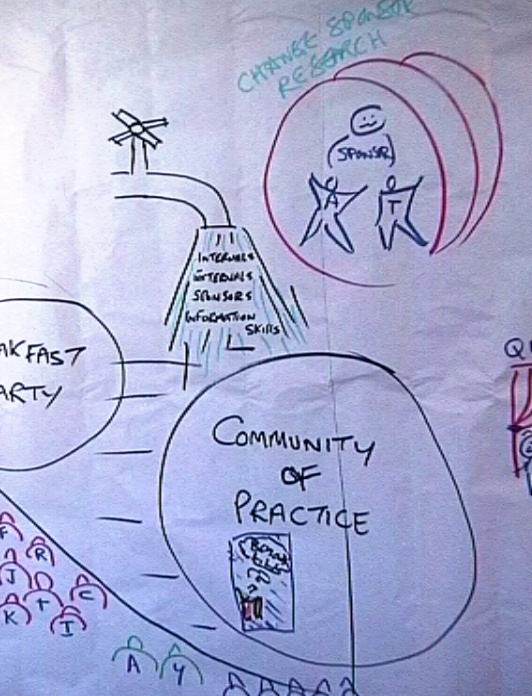 CHANGE SPONSOR
RESEARCH
SPONSR
A T
INTERNALS
EXTERNALS
SPONSORS
INFORMATION
SKILLS
AKFAST
ARTY
COMMUNITY
OF
PRACTICE
F
R
J
K
T
C
I
A Y